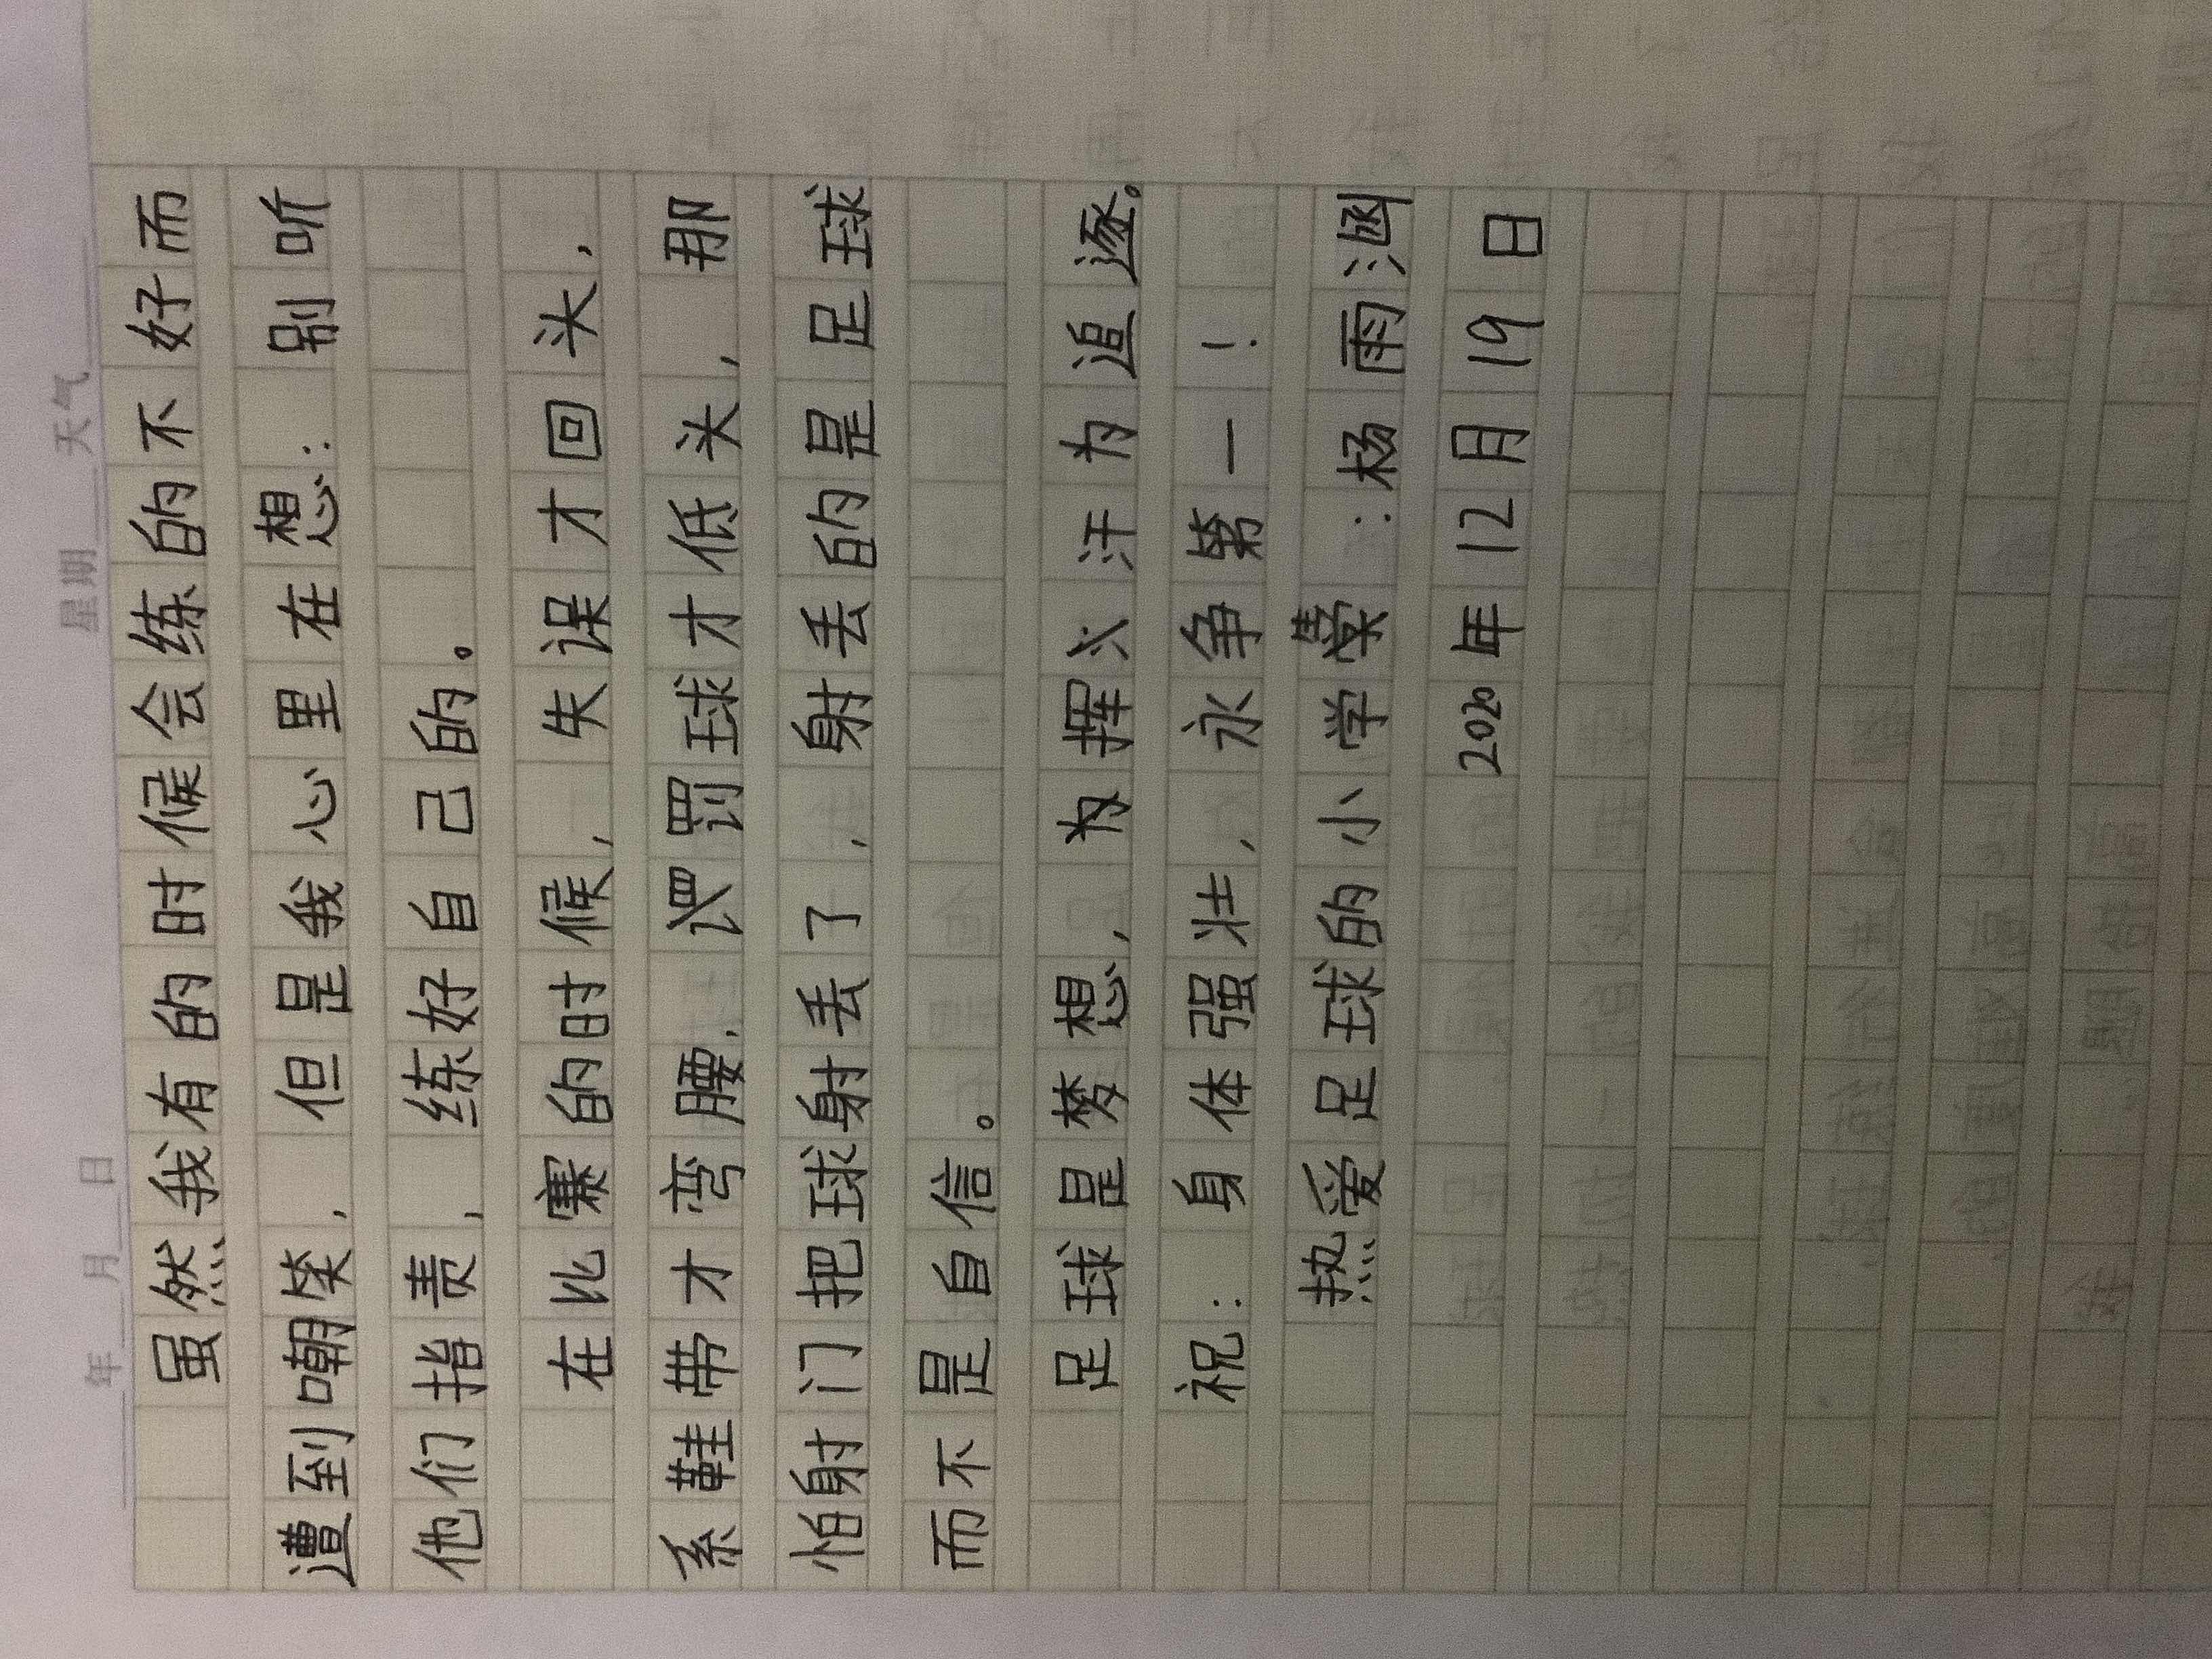 年 月 日 星期 天气
虽然我有的时候会练的不好而
遭到嘲笑，但是我心里在想：别听
他们指责，练好自己的。
在比赛的时候，失误才回头，
系鞋带才弯腰，罚球才低头，那
怕射门把球射丢了，射丢的是足球
而不是自信。
足球是梦想，为挥汗为追逐。
祝：身体强壮，永争第一！
热爱足球的小学：杨雨涵
2020年12月19日